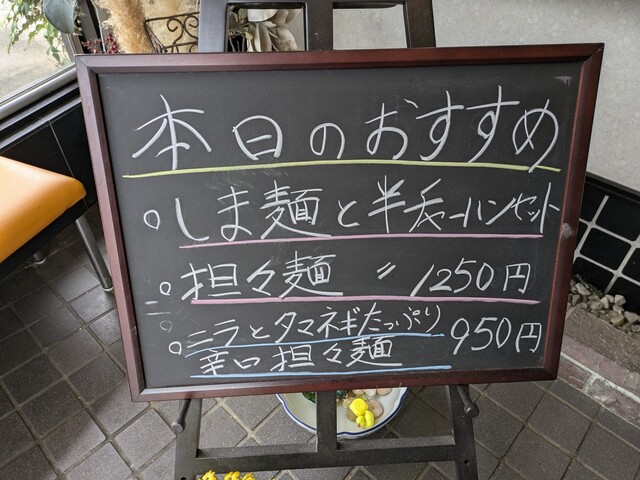 本日のおすすめ
○しま麺と半チャーハンセット
○担々麺 〃 1250円
○ニラとタマネギたっぷり
辛口担々麺 950円